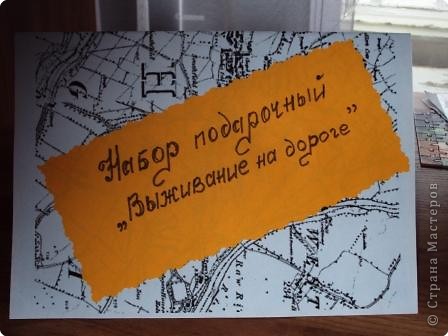 Набор подарочный
„Выживание на дороге”
E
G
WEST
© Страна Мастеров